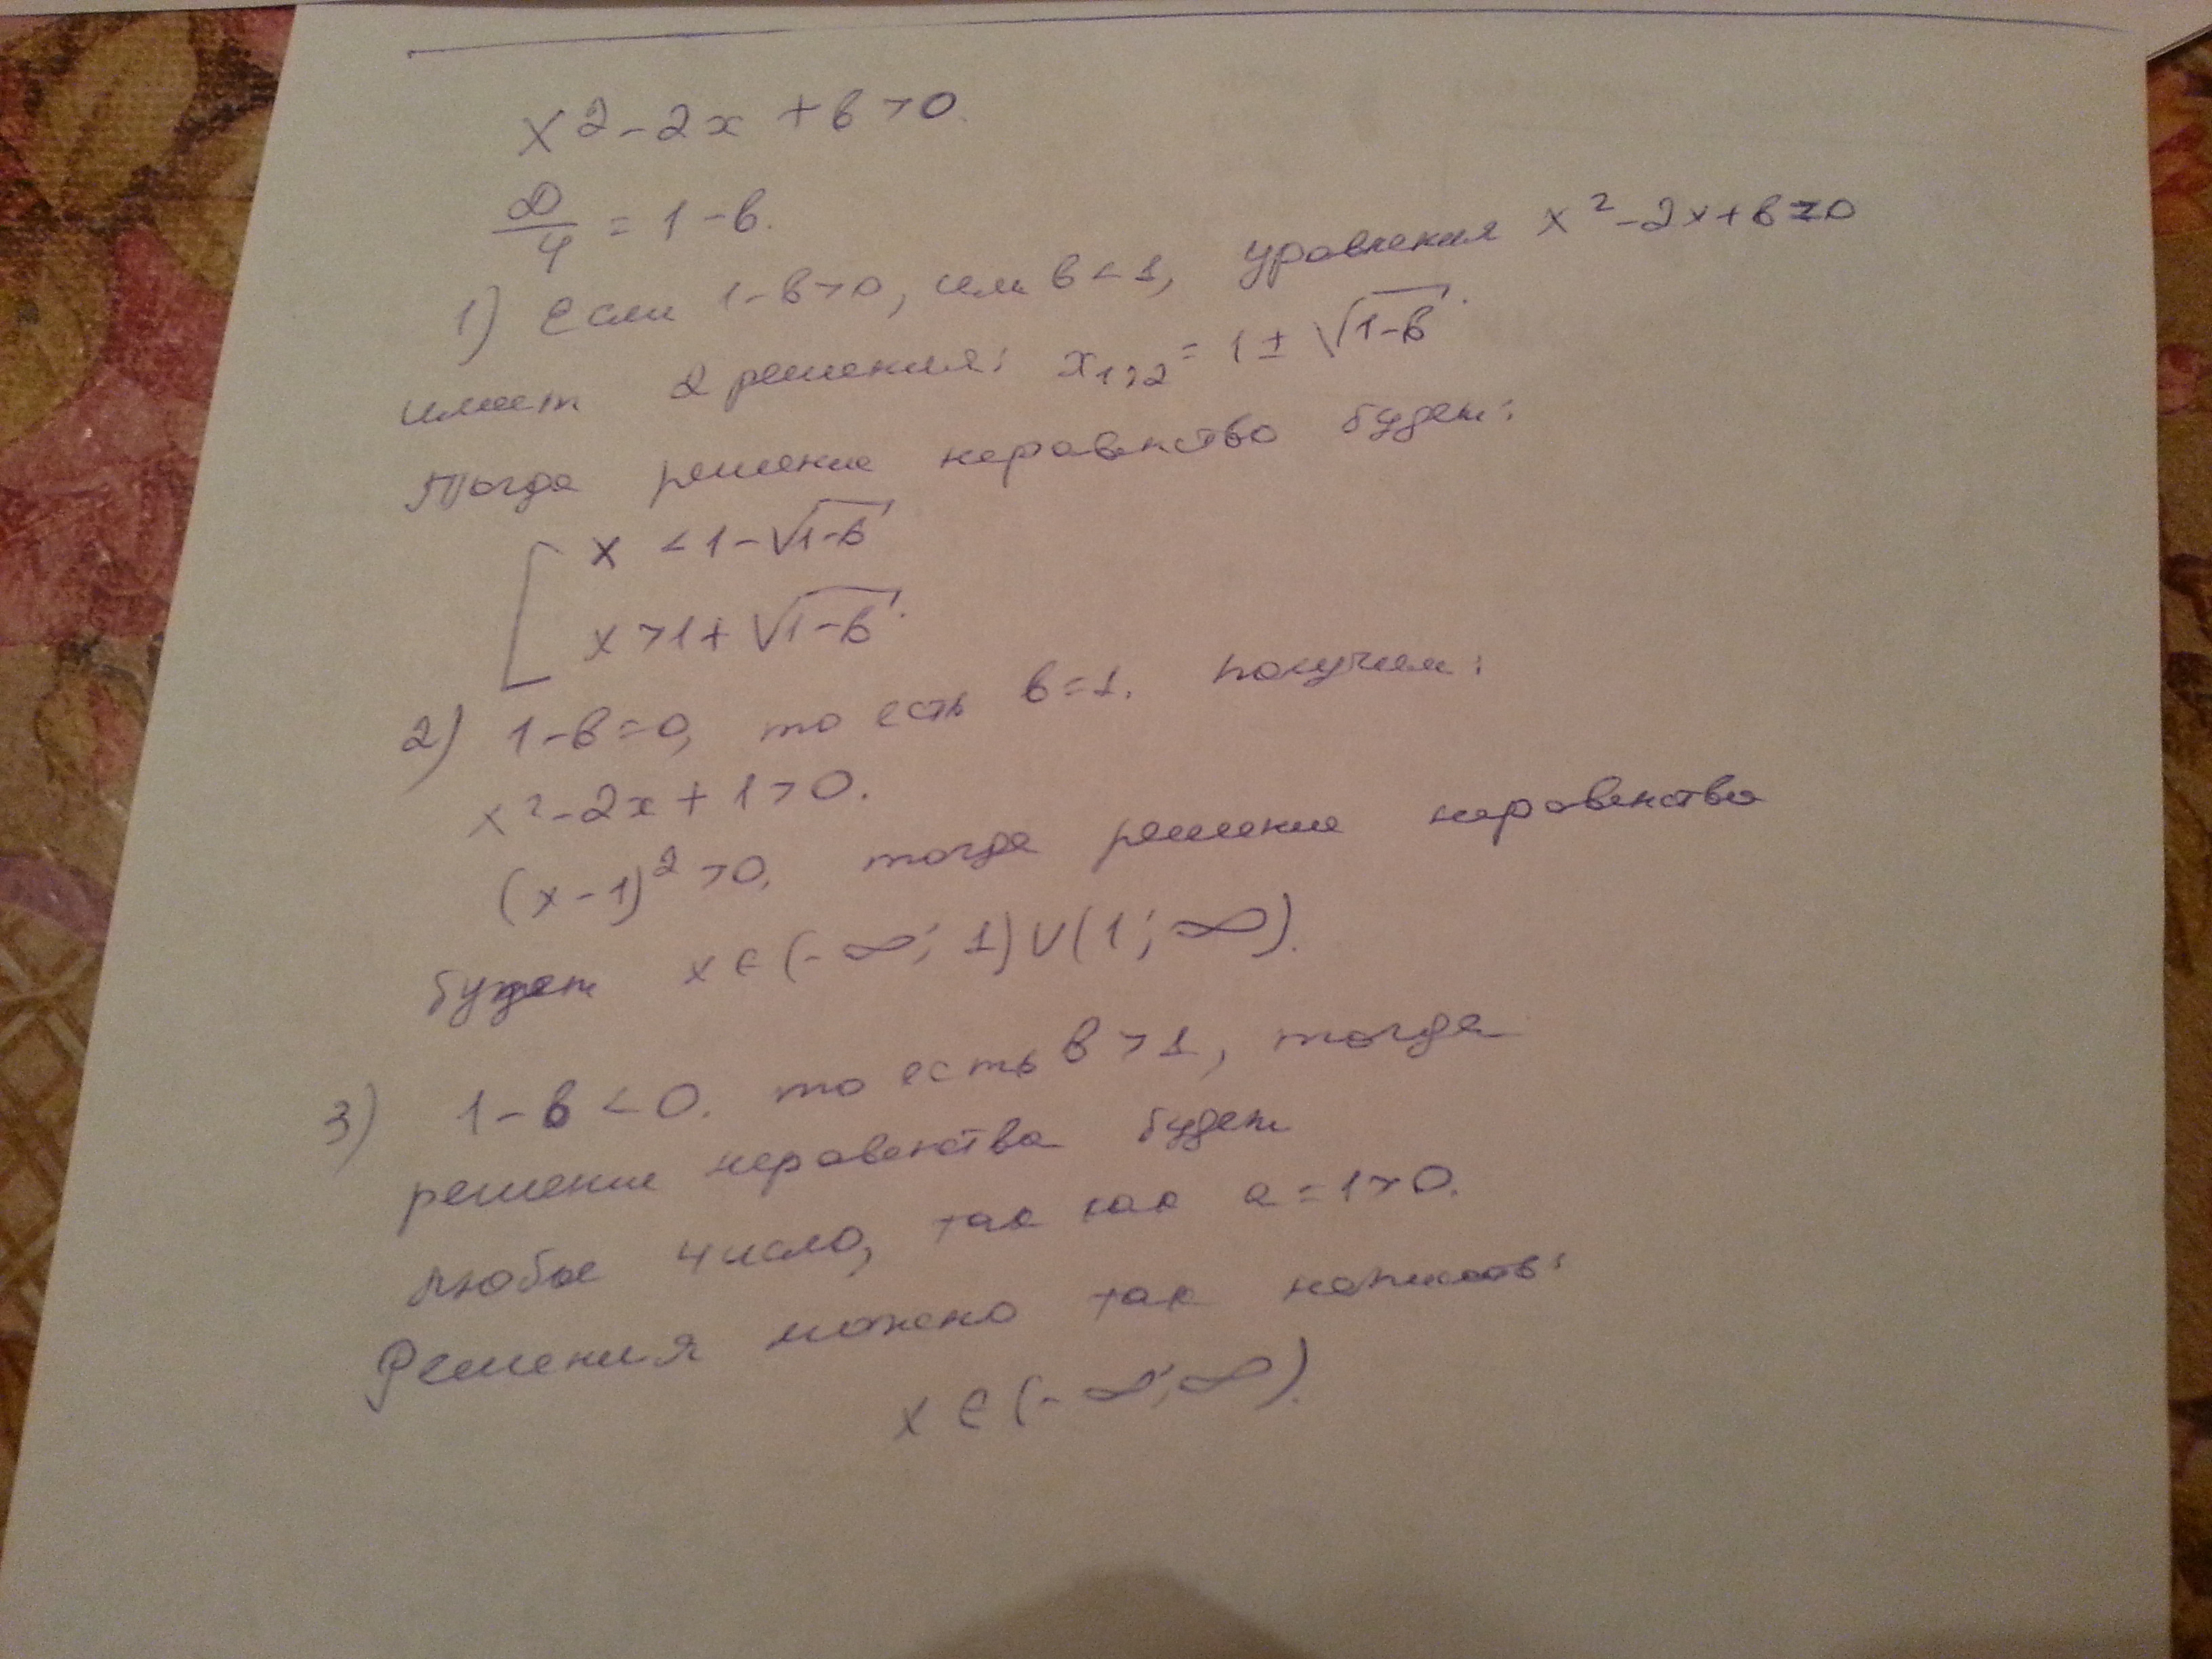 x² - 2x + в > 0.
D/4 = 1 - в.
1) Если 1 - в > 0, или в < 1, уравнения x² - 2x + в = 0
имеет 2 решения: x₁,₂ = 1 ± √(1-в).
Тогда решение неравенство будет:
[ x < 1 - √(1-в)
x > 1 + √(1-в).
2) 1 - в = 0, то есть в = 1. получим:
x² - 2x + 1 > 0.
(x - 1)² > 0, тогда решение неравенства
будет x ∈ (-∞; 1) ∪ (1; ∞).
3) 1 - в < 0. то есть в > 1, тогда
решение неравенства будет
любое число, так как a = 1 > 0.
Решения можно так написать:
x ∈ (-∞; ∞).